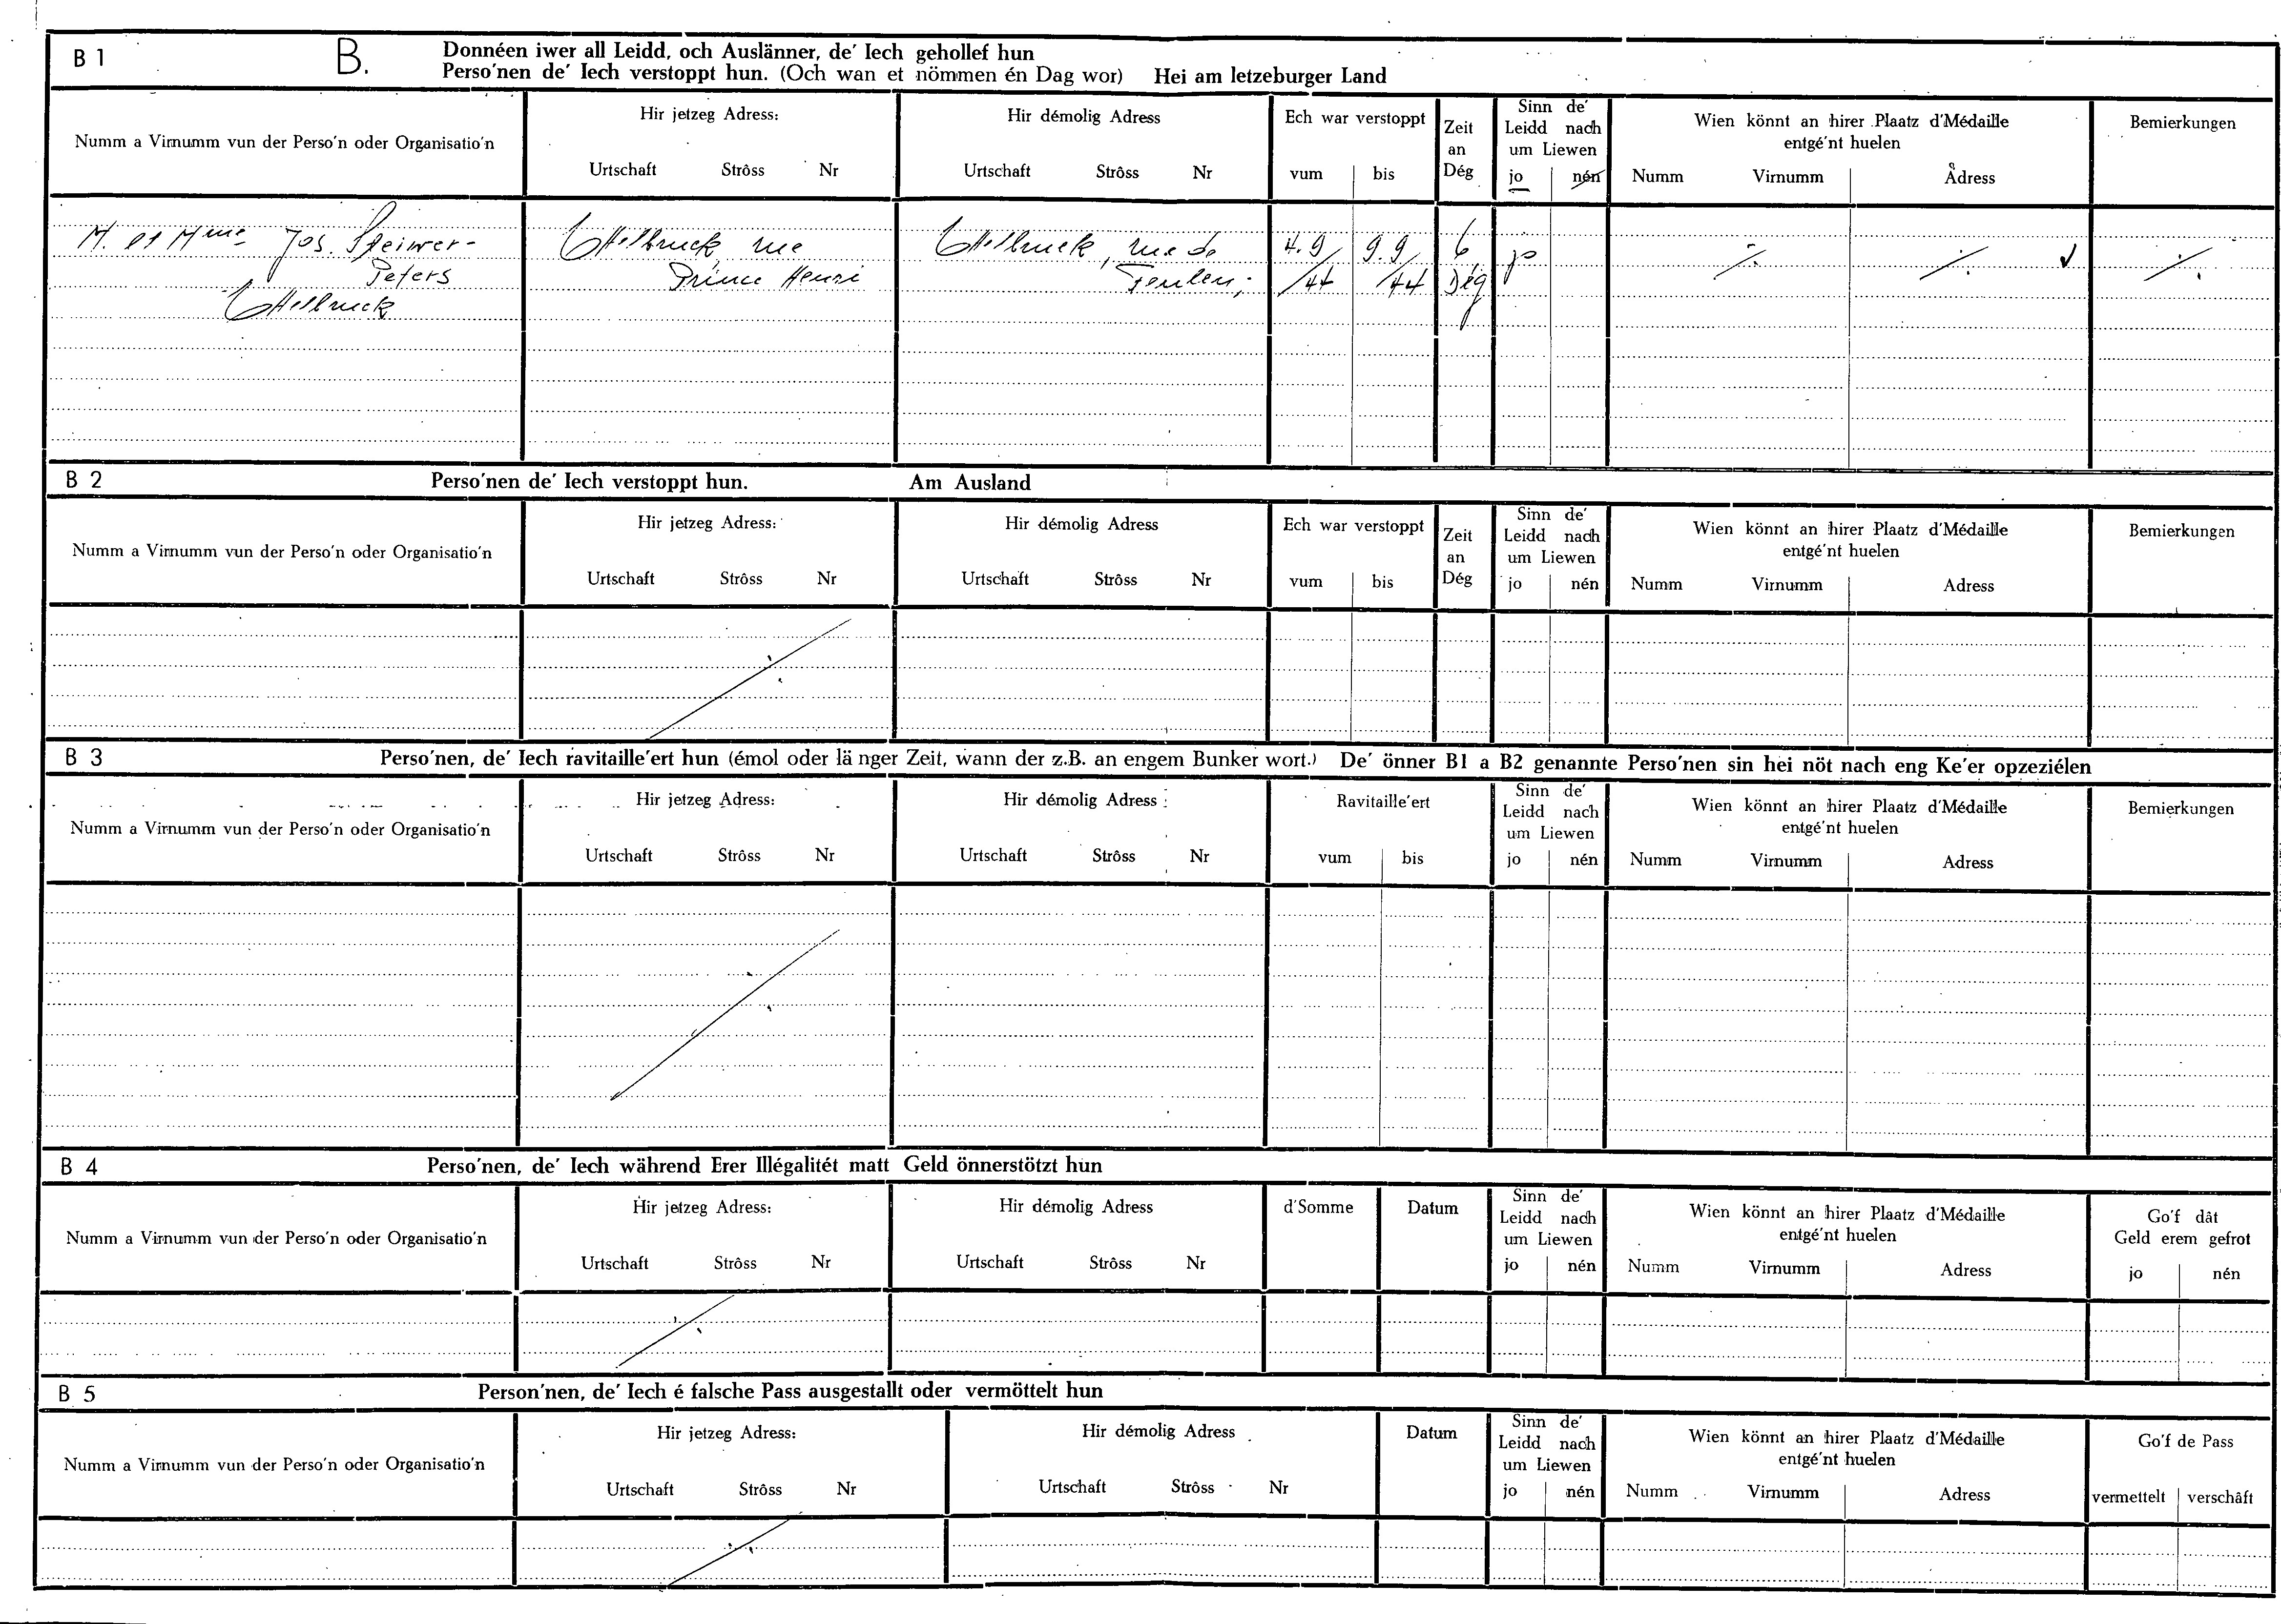 B 1 B. Donnéen iwer all Leidd, och Auslänner, de' Iech gehollef hun
Perso'nen de' Iech verstoppt hun. (Och wan et nömmen én Dag wor) Hei am letzeburger Land
Numm a Virnumm vun der Perso'n oder Organisatio'n
Hir jetzeg Adress:
Urtschaft Strôss Nr
Hir démolig Adress
Urtschaft Strôss Nr
Ech war verstoppt
vum bis
Zeit
an
Dég
Sinn de'
Leidd nach
um Liewen
jo nén
Wien könnt an hirer Plaatz d'Médaille
entgé'nt huelen
Numm Virnumm Adress
Bemierkungen
M. et Mme Jos. Steiwer-
Peters
Ettelbruck
Ettelbruck, rue
Prince Henri
Ettelbruck, rue de
Feulen;
4.9/
/44
9.9/
/44
6
Dég
jo
B 2 Perso'nen de' Iech verstoppt hun. Am Ausland
Numm a Virnumm vun der Perso'n oder Organisatio'n
Hir jetzeg Adress:
Urtschaft Strôss Nr
Hir démolig Adress
Urtschaft Strôss Nr
Ech war verstoppt
vum bis
Zeit
an
Dég
Sinn de'
Leidd nach
um Liewen
jo nén
Wien könnt an hirer Plaatz d'Médaille
entgé'nt huelen
Numm Virnumm Adress
Bemierkungen
B 3 Perso'nen, de' Iech ravitaille'ert hun (émol oder länger Zeit, wann der z.B. an engem Bunker wort.) De' önner B1 a B2 genannte Perso'nen sin hei nöt nach eng Ke'er opzeziélen
Numm a Virnumm vun der Perso'n oder Organisatio'n
Hir jetzeg Adress:
Urtschaft Strôss Nr
Hir démolig Adress
Urtschaft Strôss Nr
Ravitaille'ert
vum bis
Sinn de'
Leidd nach
um Liewen
jo nén
Wien könnt an hirer Plaatz d'Médaille
entgé'nt huelen
Numm Virnumm Adress
Bemierkungen
B 4 Perso'nen, de' Iech während Erer Illégalitét matt Geld önnerstötzt hun
Numm a Virnumm vun der Perso'n oder Organisatio'n
Hir jetzeg Adress:
Urtschaft Strôss Nr
Hir démolig Adress
Urtschaft Strôss Nr
d'Somme
Datum
Sinn de'
Leidd nach
um Liewen
jo nén
Wien könnt an hirer Plaatz d'Médaille
entgé'nt huelen
Numm Virnumm Adress
Go'f dât
Geld erem gefrot
jo nén
B 5 Person'nen, de' Iech é falsche Pass ausgestallt oder vermöttelt hun
Numm a Virnumm vun der Perso'n oder Organisatio'n
Hir jetzeg Adress:
Urtschaft Strôss Nr
Hir démolig Adress
Urtschaft Strôss Nr
Datum
Sinn de'
Leidd nach
um Liewen
jo nén
Wien könnt an hirer Plaatz d'Médaille
entgé'nt huelen
Numm Virnumm Adress
Go'f de Pass
vermettelt verschâft